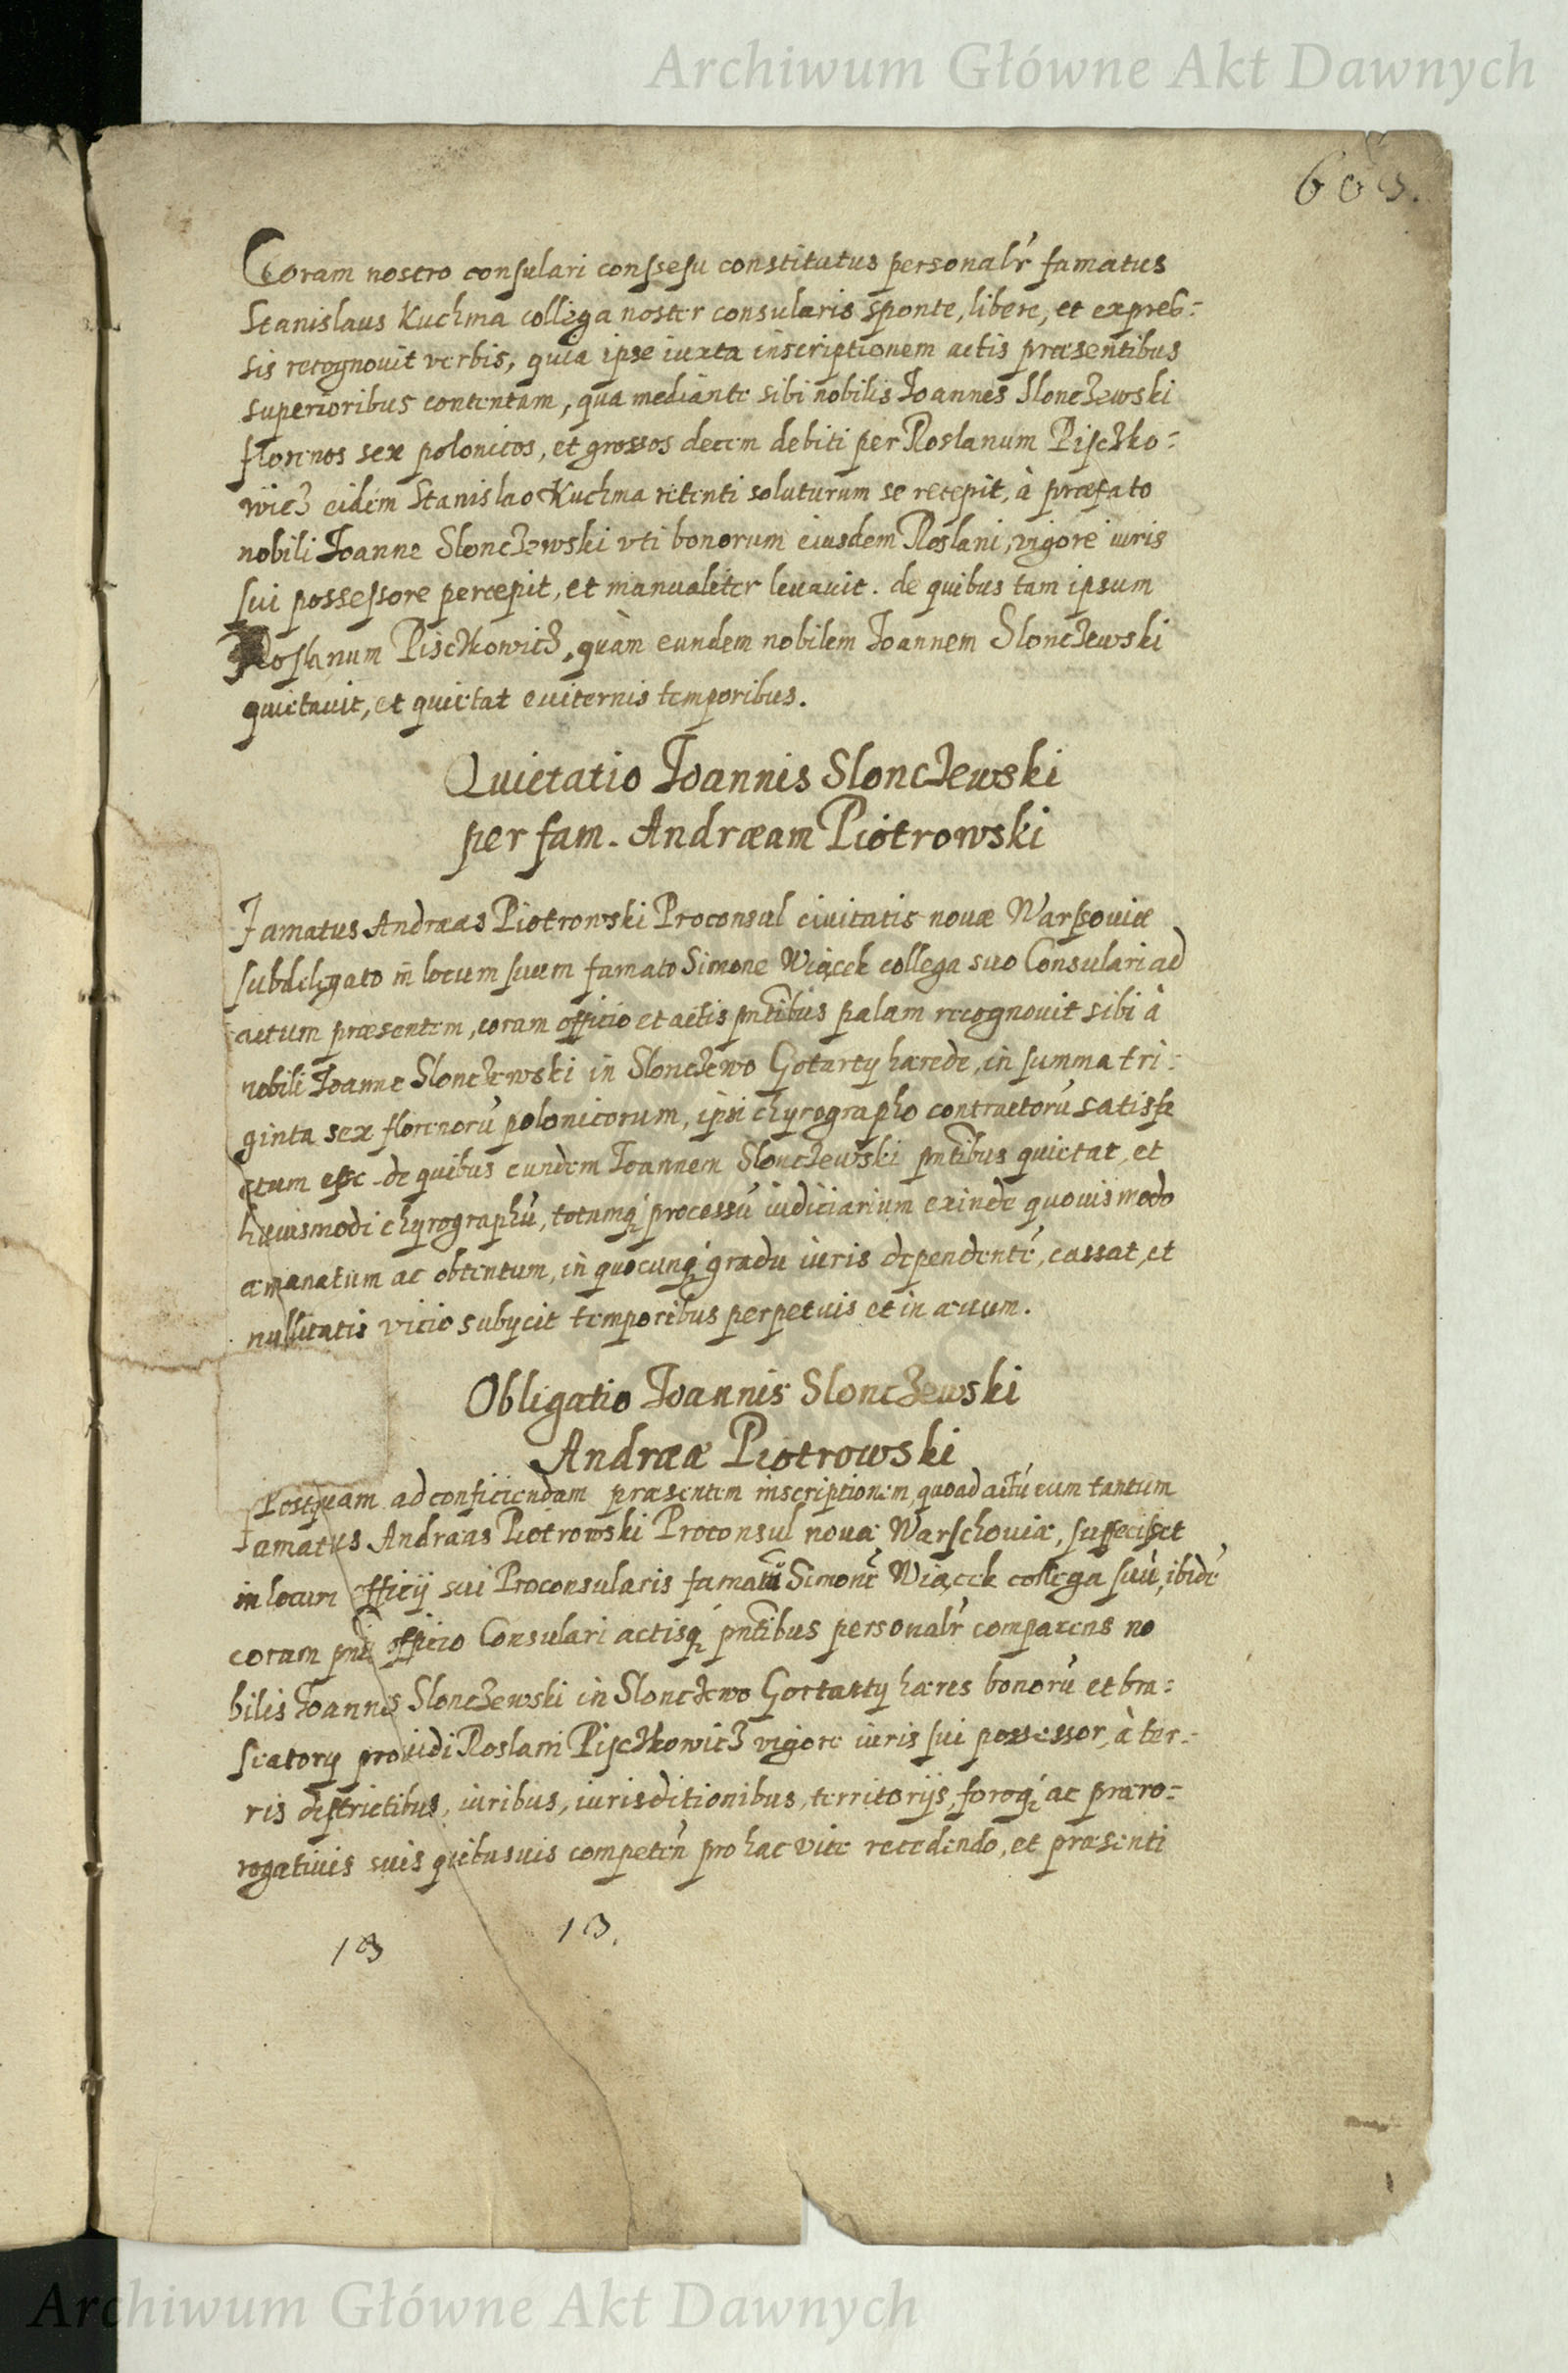 Archiwum Główne Akt Dawnych
Coram nostro consulari consseſu constitutus personalr̃ famatus
Stanislaus Kuchma collega noster consularis sponte, libere, et expreſ:
sis recognouit verbis, quia ipse iuxta inscriptionem actis præsentibus
superioribus contentam, qua mediante sibi nobilis Joannes Slonczewski
florenos sex polonicos, et grossos decem debiti per Roslanum Piſczko:
wicz eidem Stanislao Kuchma retenti soluturum se recepit, à præfato
nobili Joanne Slonczewski vti bonorum eiusdem Roslani, vigore iuris
ſui posseſsore percepit, et manualiter leuauit. de quibus tam ipsum
Roſlanum Pisczkowicz, quàm eundem nobilem Joannem Slonczewski
quietauit, et quietat euiternis temporibus.
Quietatio Joannis Slonczewski
per fam. Andræam Piotrowski
Famatus Andræas Piotrowski Proconsul ciuitatis nouæ Warſsouiæ
ſubdelegato in locum ſuum famato Simone Wiącek collega suo Consulari ad
actum præsentem, coram officio et actis pñtibus palam recognouit sibi à
nobili Joanne Slonczewski in Slonczewo Gotarty hærede, in summa tri:
ginta sex florenorũ polonicorum, ipsi chyrographo contractorũ satisfa
ctum eſse. de quibus eundem Joannem Slonczewski pñtibus quietat, et
huiusmodi chyrographũ, totumq́ processũ iudiciarium exinde quouis modo
æmanatum ac obtentum, in quocunq́ gradu iuris dependentẽ, cassat, et
nullitatis vicio subycit temporibus perpetuis et in æuum.
Obligatio Joannis Slonczewski
Andrææ Piotrowski
Postquam ad conficiendam præsentem inscriptionem, quoad actũ eum tantum
Famatus Andræas Piotrowski Proconsul nouæ Warſchouiæ, ſuffeciſset
in locum officij sui Proconsularis famatũ Simonẽ Wiącek collega ſuũ, ibidẽ
coram pñti officio Consulari actisq́ pñtibus personalr̃ comparens no
bilis Joannes Slonczewski in Slonczewo Gottarty hæres bonorũ et bra:
ſeatory prouidi Roslani Piſczkowicz vigore iuris ſui possessor, à ter:
ris diſtrictibus, iuribus, iurisditionibus, territorijs, foroq́ ac præro:
rogatiuis suis quibusuis competeñ pro hac vice recedendo, et præsenti
13 13.
Archiwum Główne Akt Dawnych